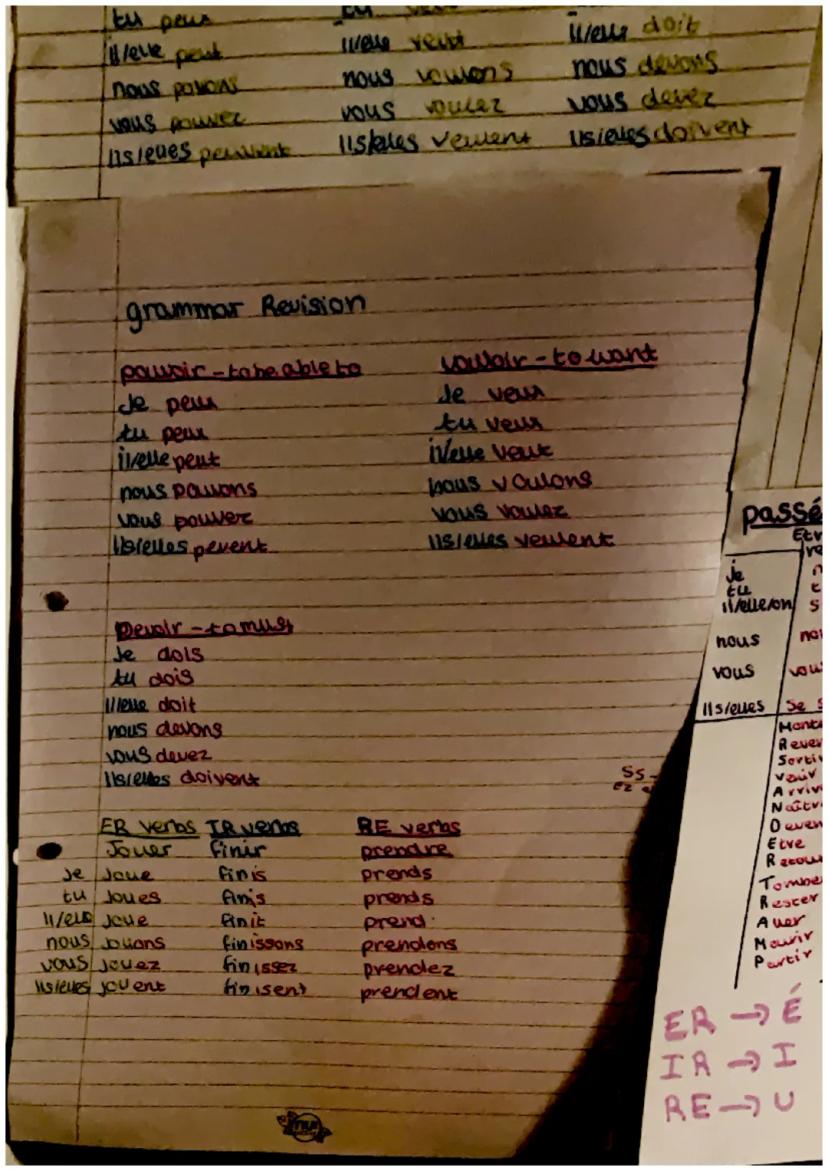 tu peux tu
il/elle peut il/elle veut il/elle doit
nous pouvons nous voulons nous devons
vous pouvez vous voulez vous devez
ils/elles peuvent ils/elles veulent ils/elles doivent
grammar Revision
pouvoir - to be able to vouloir - to want
Je peux Je veux
tu peux tu veux
il/elle peut il/elle veut
nous pouvons nous voulons
vous pouvez vous voulez
ils/elles pevent ils/elles veulent
Devoir - to must
Je dois
tu dois
il/elle doit
nous devons
vous devez
ils/elles doivent
ss
ez
ER verbs IR verbs RE verbs
Jouer finir prendre
Je Joue finis prends
tu Joues finis prends
il/elle Joue finit prend
nous Jouons finissons prendons
vous Jouez finissez prendez
ils/elles jouent finisent prendent
passé
Etr
je
tu
il/elle/on s
nous
vous vou
ils/elles se s
Mont
Rever
Sorti
venir
Arriv
Naîtr
Deven
Etre
Retou
Tombe
Rester
Aller
Mourir
Partir
ER → É
IR → I
RE → U